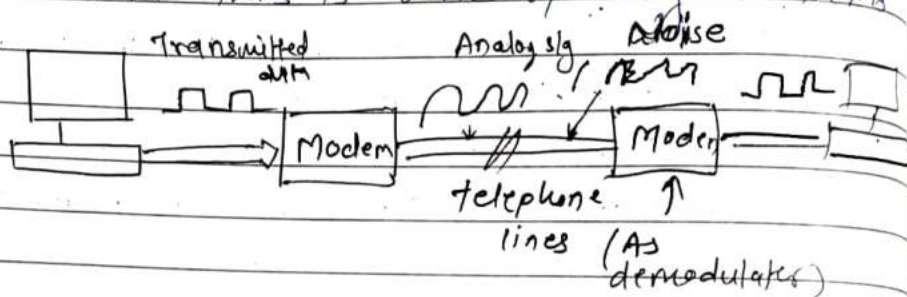 Transmitted
data
Analog s/g
Noise
Modem
Modem
telephone
lines
(As
demodulator)